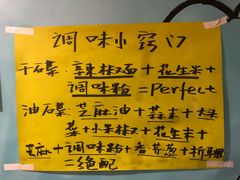 调味小窍门
干石菜:辣椒面+花生米+
调味粉=Perfect
油石菜:芝麻油+蒜末+
菜+小米椒+花生末+
芝麻+调味粉+香葱+折耳根
=绝配